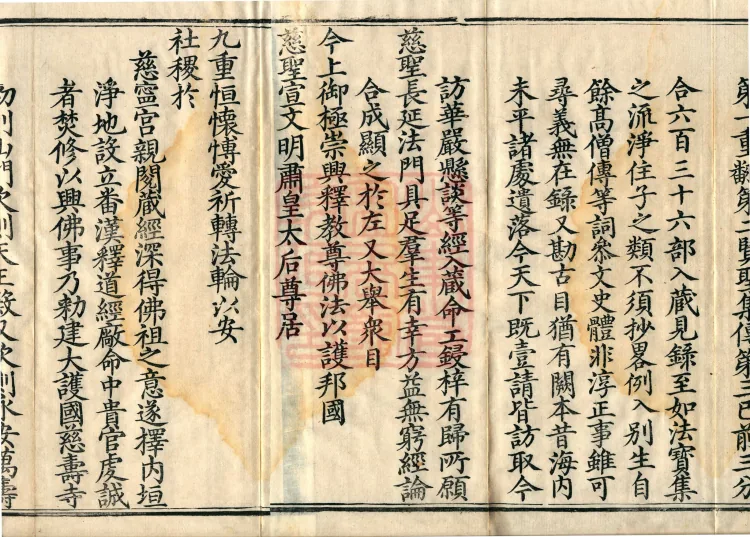 第一重
合六百三十六部入蔵見錄至如法寶集
之流淨住子之類不須抄畧例入别生自
餘髙僧傳等詞叅文史體非淳正事雖可
尋義無在録又勘古目猶有闕本昔海内
未平諸處遺落今天下既壹請皆訪取今
訪華嚴懸談等經入蔵命工鋟梓有歸所願
慈聖長延法門具足羣生有幸方益無窮經論
合成顯之於左又大舉衆目
今上御極崇興釋教尊佛法以護邦國
慈聖宣文明肅皇太后尊居
九重恒懷愽愛祈轉法輪以安
社稷於
慈寍宮親閱蔵經深得佛祖之意遂擇内垣
淨地設立畨漢釋道經廠命中貴官虔誠
者焚修以興佛事乃勑建大護國慈壽寺